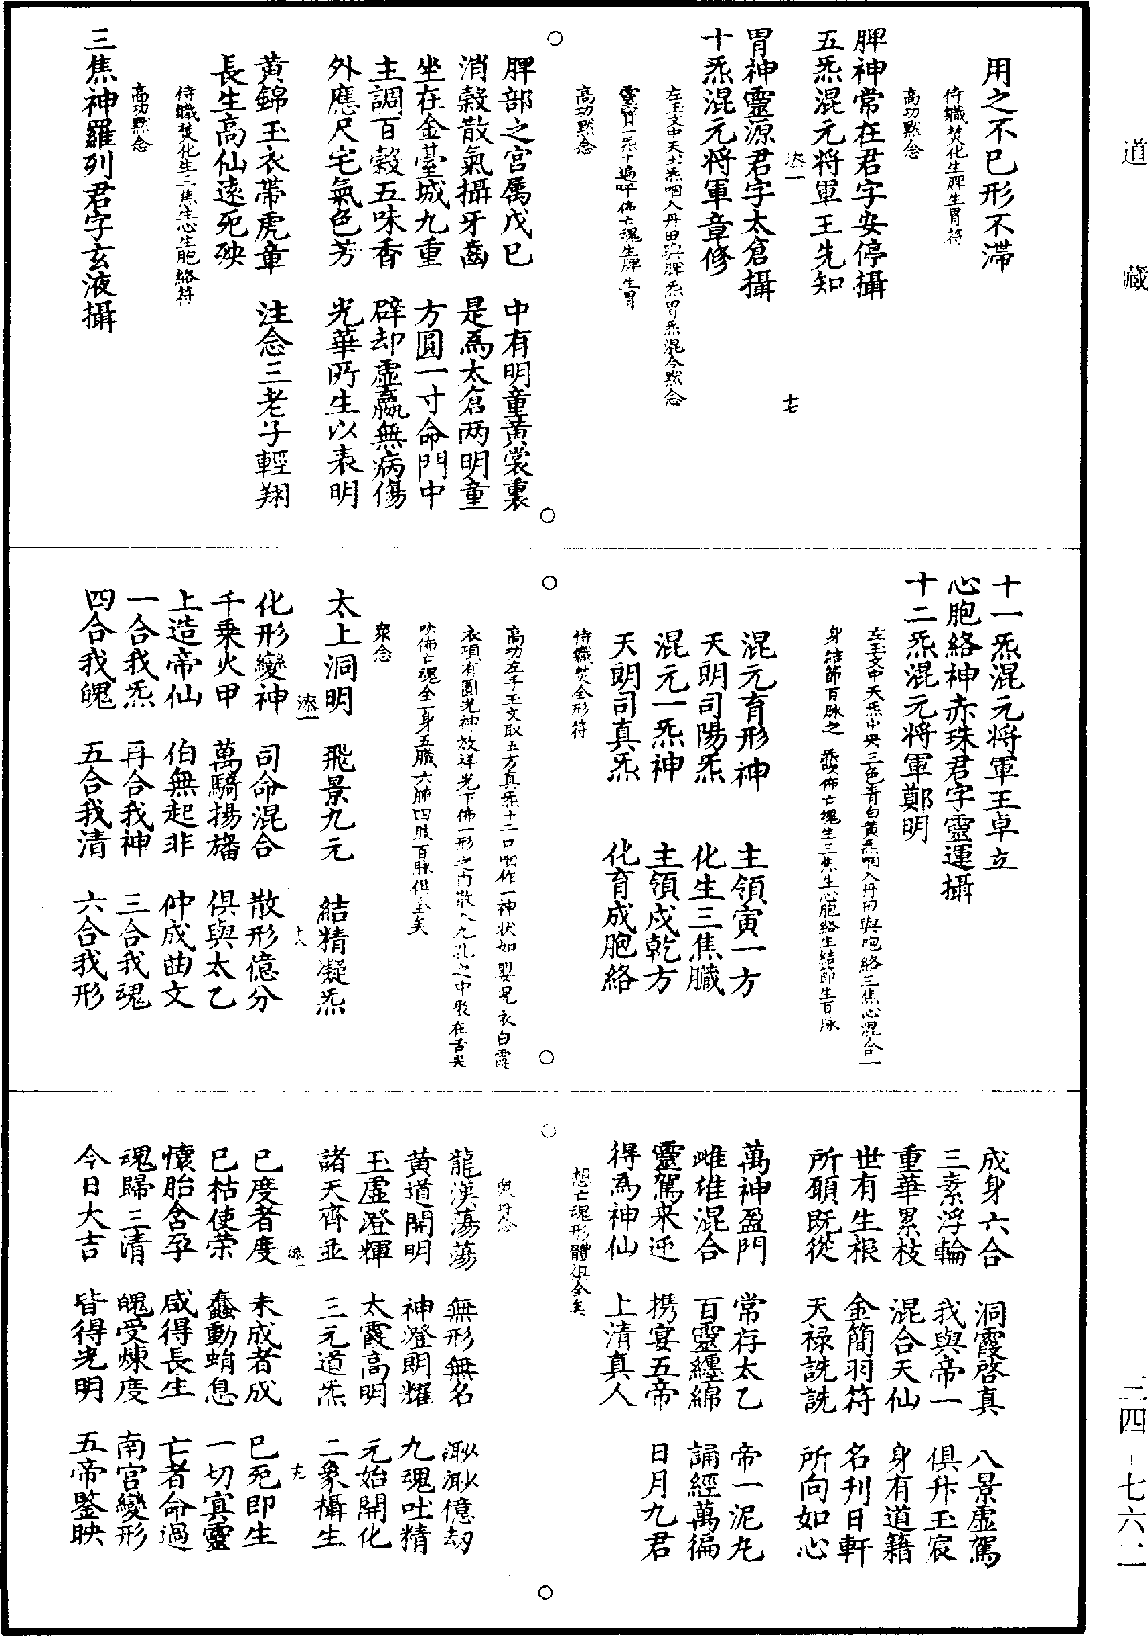 道藏
三四－七六二
用之不已形不滯
侍職焚化生脾生胃符
高功默念
脾神常在君字安停攝
五炁混元將軍王先知
胃神靈源君字太倉攝
十炁混元將軍章修
左玉文中天黃炁咽入丹田與脾炁胃炁混合默念
靈寶一炁十遍呼佈亡魂生脾生胃
高功默念
脾部之宮属戊巳　中有明童黃裳裏
消穀散氣攝牙齒　是爲太倉两明童
坐在金臺城九重　方圓一寸命門中
主調百穀五味香　辟却虛羸無病傷
外應尺宅氣色芳　光華所生以表明
黃錦玉衣帶虎章　注念三老子輕翔
長生高仙遠死殃
侍職焚化生三焦生心生胞絡符
高功默念
三焦神羅列君字玄液攝
十一炁混元將軍王卓立
心胞絡神赤珠君字靈運攝
十二炁混元將軍鄭明
左玉文中天炁中央三色青白黃炁咽入丹田與胞絡三焦心混合一
身結節百脉之　炁吹佈亡魂生三焦生心胞絡生結節生百脉
混元育形神　主領寅一方
天朗司陽炁　化生三焦臟
混元一炁神　主領戌乾方
天朗司真炁　化育成胞絡
侍職焚全形符
高功左手玉文取五方真炁十二口嚥作一神狀如嬰兒衣白霞
衣項有圓光神放祥光下佈一形之內散入九孔之中聚在舌尖
吹佈亡魂全一身五臟六腑四肢百脉俱全矣
衆念
太上洞明　飛景九元　結精凝炁
化形變神　司命混合　散形億分
千乘火甲　萬騎揚旛　俱與太乙
上造帝仙　伯無起非　仲成曲文
一合我炁　再合我神　三合我魂
四合我魄　五合我清　六合我形
成身六合　洞霞啓真　八景虛駕
三素浮輪　我與帝一　俱升玉宸
重華累枝　混合天仙　身有道籍
世有生根　金簡羽符　名刊日軒
所願既從　天祿詵詵　所向如心
萬神盈門　常存太乙　帝一泥丸
雌雄混合　百靈纏綿　誦經萬徧
靈駕来迎　携宴五帝　日月九君
得爲神仙　上清真人
想亡魂形體俱全矣
龍漢蕩蕩　無形無名　渺渺億劫
黃道開明　神澄朗耀　九魂吐精
玉虛澄輝　太霞高明　元始開化
諸天齊並　三元道炁　二象攝生
已度者度　未成者成　已死即生
已枯使荣　蠢動蛸息　一切寘靈
懷胎含孕　咸得長生　亡者命過
魂歸三清　魄受煉度　南宮變形
今日大吉　皆得光明　五帝鑒映